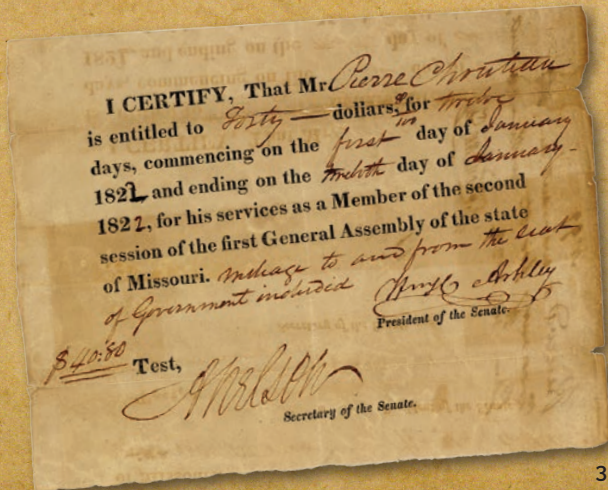 I CERTIFY, That Mr Pierre Chouteau
is entitled to Forty — dollars, 80/100 for twelve
days, commencing on the first day of January
1822, and ending on the twelfth day of January
1822, for his services as a Member of the second
session of the first General Assembly of the state
of Missouri. mileage to and from the seat
of Government included
Ashley
President of the Senate.
$40:80 Test,
Secretary of the Senate.
3